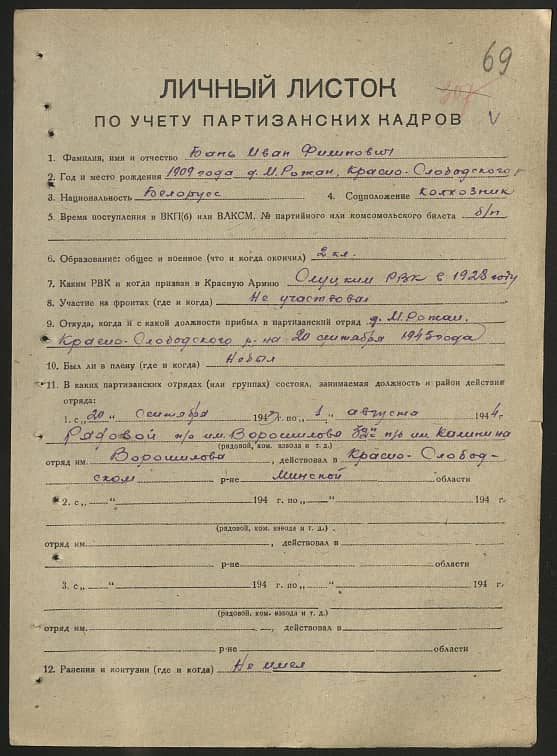 69
ЛИЧНЫЙ ЛИСТОК
ПО УЧЕТУ ПАРТИЗАНСКИХ КАДРОВ V
1. Фамилия, имя и отчество Бань Иван Филипович
2. Год и место рождения 1909 года д. М. Рожан, Красно-Слободского
3. Национальность Белорусс 4. Соцположение колхозник
5. Время поступления в ВКП(б) или ВЛКСМ, № партийного или комсомольского билета б/п
6. Образование: общее и военное (что и когда окончил) 2 кл.
7. Каким РВК и когда призван в Красную Армию Слуцким РВК в 1928 году
8. Участие на фронтах (где и когда) Не участвовал
9. Откуда, когда и с какой должности прибыл в партизанский отряд д. М. Рожан,
Красно-Слободского р-на 20 сентября 1943 года
10. Был ли в плену (где и когда) Небыл
11. В каких партизанских отрядах (или группах) состоял, занимаемая должность и район действия
отряда:
1. с „20" сентября 1943 г. по „1" августа 1944 г.
Рядовой п/о им. Ворошилова п/б им. Калинина
(рядовой, ком. взвода и т. д.)
отряд им. Ворошилова, действовал в Красно-Слобод-
ском р-не Минской области
2. с „ " 194 г. по „ " 194 г.
(рядовой, ком. взвода и т. д.)
отряд им. , действовал в
р-не области
3. с „ " 194 г. по „ " 194 г.
(рядовой, ком. взвода и т. д.)
отряд им. , действовал в
р-не области
12. Ранения и контузии (где и когда) Не имел